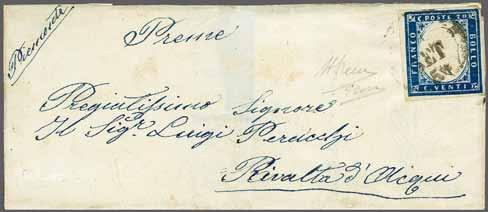 Piemonte
Preme
C. POSTE 20
FRANCO
BOLLO
C. VENTI
Pregiatissimo Signore
Il Sigr. Luigi
Rivalta d'Acqui